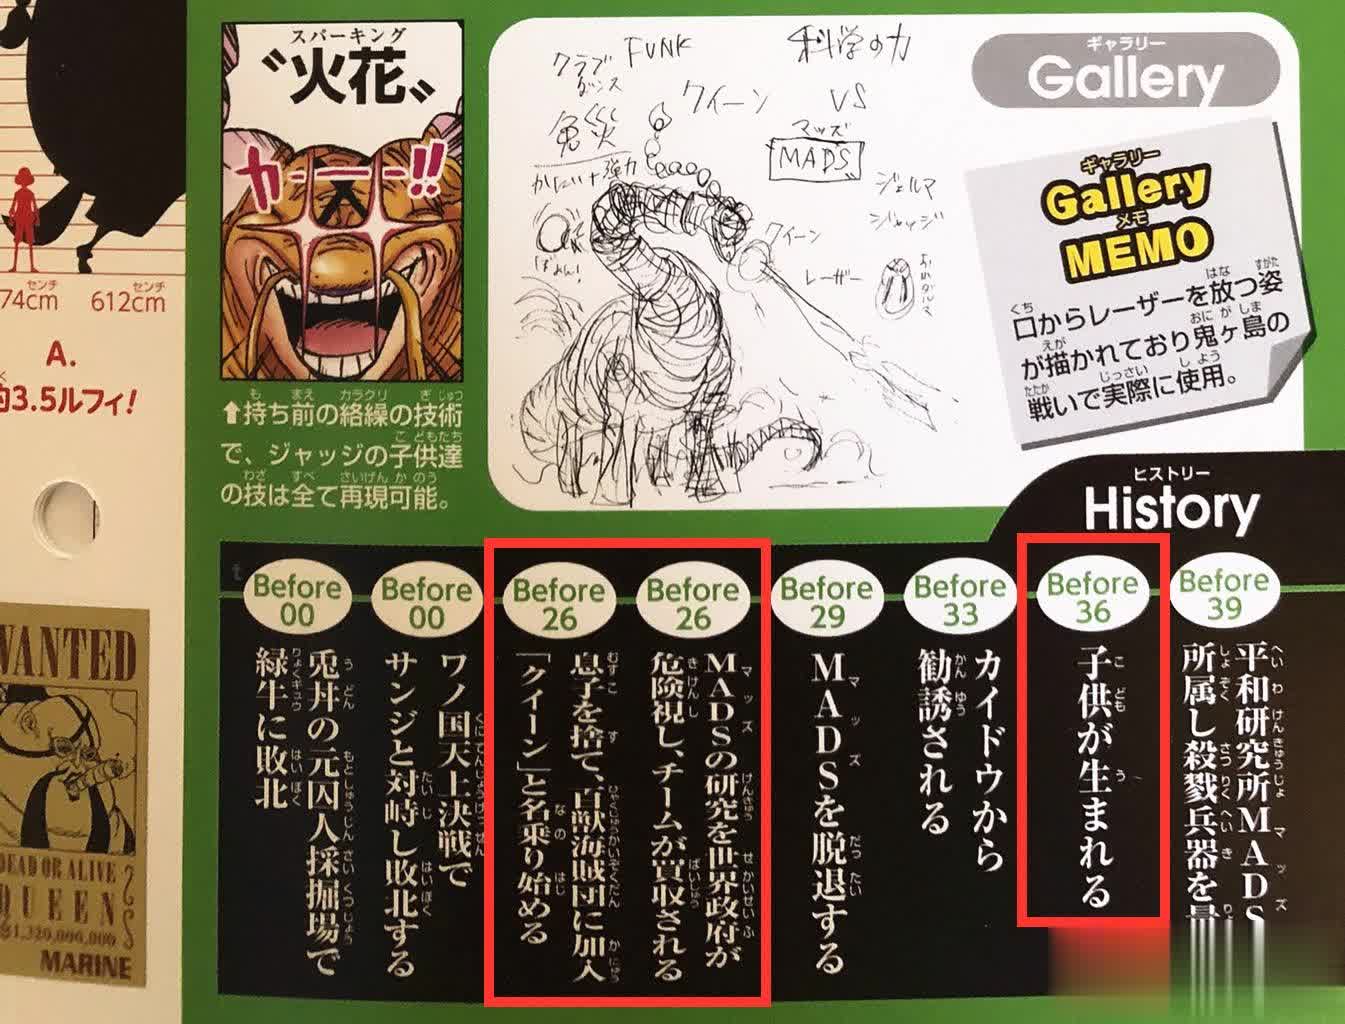 スパーキング
〝火花〟
カーーッ!!
⬆持ち前の絡繰の技術
で、ジャッジの子供達
の技は全て再現可能。
74cm
612cm
A.
約3.5ルフィ!
WANTED
DEAD OR ALIVE
QUEEN
1,320,000,000
MARINE
FUNK
科学の力
クイーン
VS
疫災
マッズ
MADS
ジェルマ
ジャッジ
クイーン
レーザー
ギャラリー
Gallery
ギャラリー
Gallery
メモ
MEMO
口からレーザーを放つ姿
が描かれており鬼ヶ島の
戦いで実際に使用。
ヒストリー
History
Before
39
平和研究所MADS
所属し殺戮兵器を
Before
36
子供が生まれる
Before
33
カイドウから
勧誘される
Before
29
MADSを脱退する
Before
26
MADSの研究を世界政府が
危険視し、チームが買収される
Before
26
息子を捨て、百獣海賊団に加入
「クイーン」と名乗り始める
Before
00
ワノ国天上決戦で
サンジと対峙し敗北する
Before
00
兎丼の元囚人採掘場で
緑牛に敗北